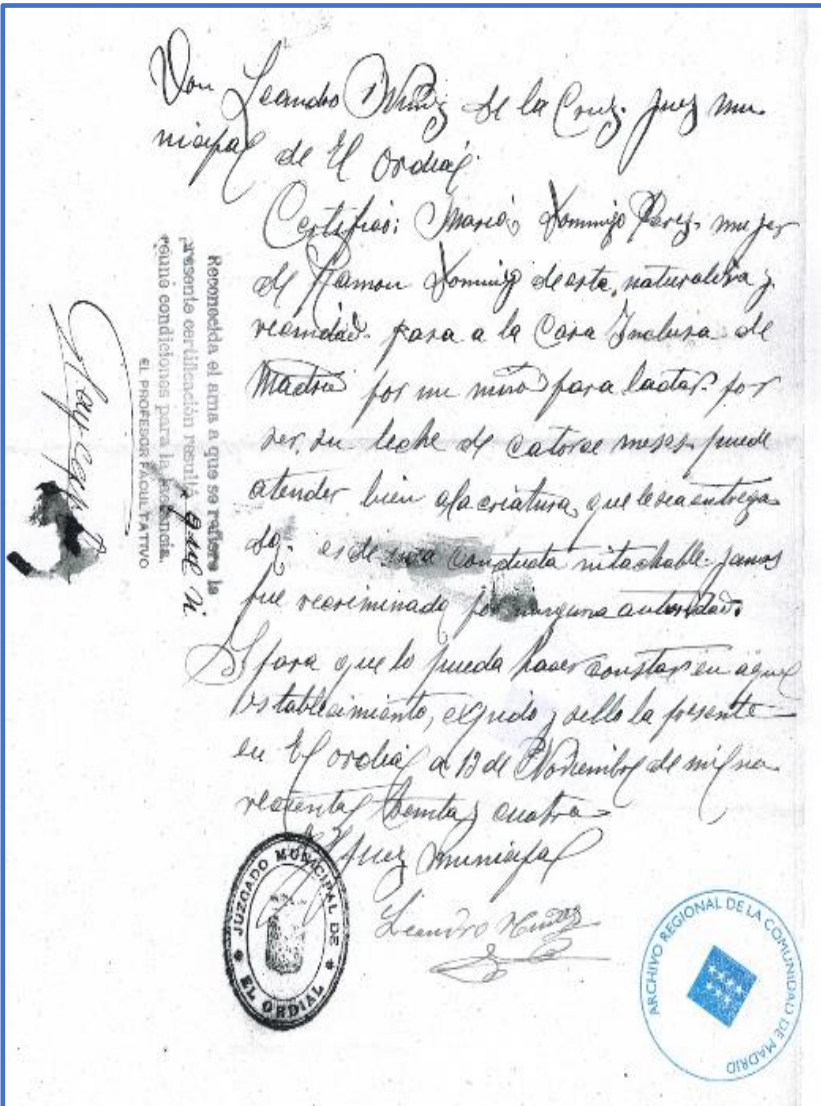 Don Leandro Núñez de la Cruz. Juez mu
nicipal de El Ordial.
Certifico: María Domingo Perez. mujer
de Ramon Domingo de esta, naturaleza y
vecindad. pasa a la Casa Inclusa de
Madrid por un niño para lactar. por
ser, su leche de catorce meses. puede
atender bien a la criatura, que le sea entrega
da. es de una conducta intachable. jamas
fue recriminada por ninguna autoridad.
Y para que lo pueda hacer constar en aquel
establecimiento, expido y sello la presente
en El Ordial a 13 de Noviembre de mil no
vecientos treinta y cuatro
El Juez municipal
Leandro Núñez
JUZGADO MUNICIPAL DE
EL ORDIAL
Reconocida el ama a que se refiere la
presente certificación resulta que si
reune condiciones para la lactancia.
EL PROFESOR FACULTATIVO
ARCHIVO REGIONAL DE LA COMUNIDAD DE MADRID